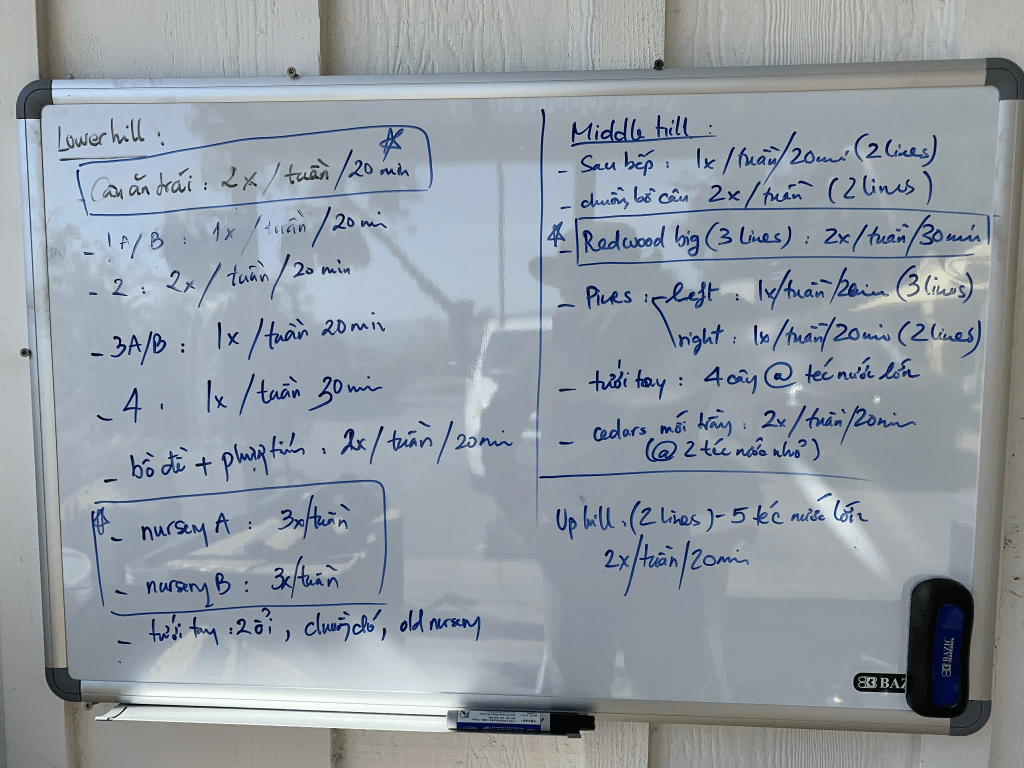 Lower hill :
- Cây ăn trái : 2x / tuần / 20 min
- 1A/B : 1x / tuần / 20 min
- 2 : 2x / tuần / 20 min
- 3A/B : 1x / tuần 20 min
- 4 . 1x / tuần 30 min
- bồ đề + phượng tím : 2x / tuần / 20 min
- nursery A : 3x/tuần
- nursery B : 3x/tuần
- tưới tay : 2 ổi, chuồng chó, old nursery
Middle hill :
- Sau bếp : 1x / tuần / 20 min (2 lines)
- chuồng bồ câu 2x / tuần (2 lines)
- Redwood big (3 lines) : 2x / tuần / 30 min
- Pines : left : 1x / tuần / 20min (3 lines)
right : 1x / tuần / 20 min (2 lines)
- tưới tay : 4 cây @ téc nước lớn
- cedars mới trồng : 2x / tuần / 20min
(@ 2 téc nước nhỏ)
Up hill : (2 lines) - 5 téc nước lớn
2x / tuần / 20min
BAZIC